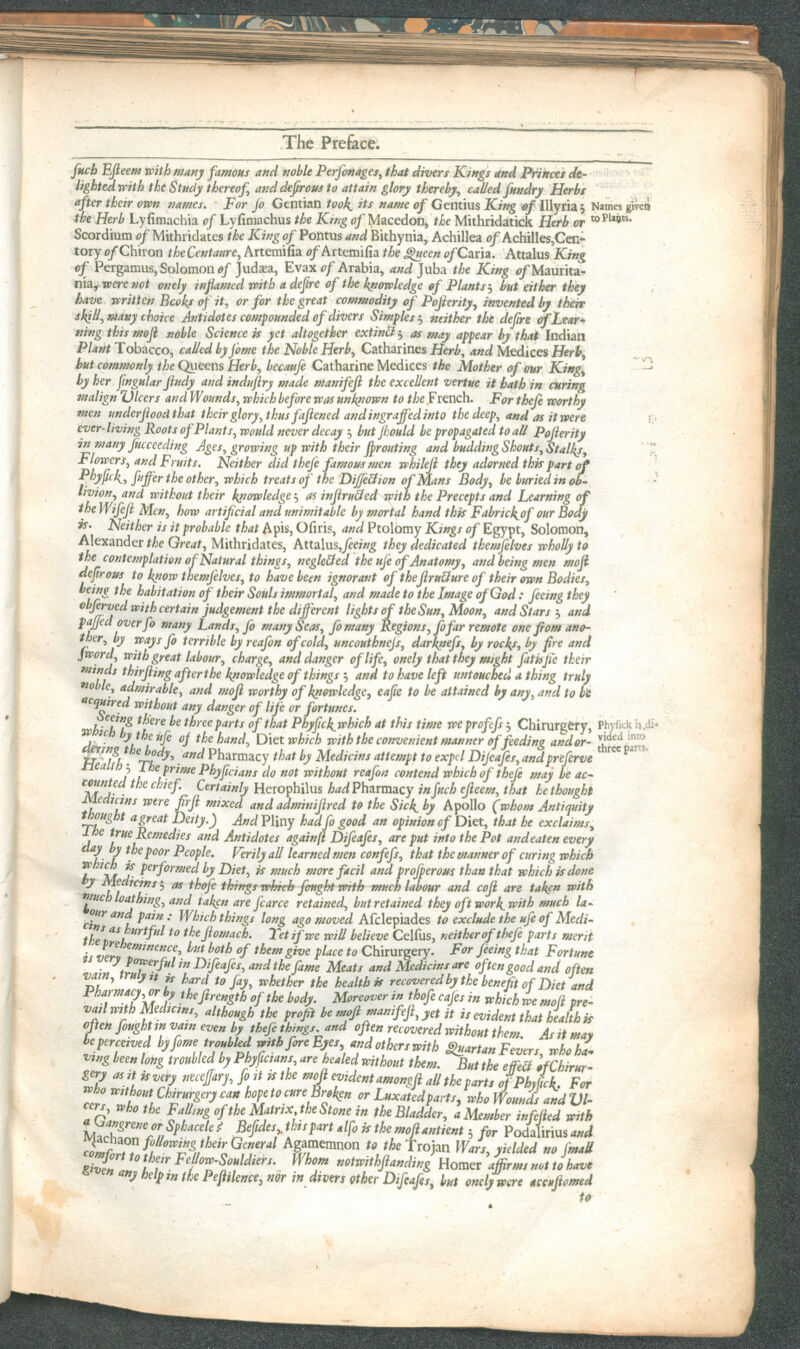 The Preface.
ſuch Eſteem with many famous and noble Perſonages, that divers Kings and Princes de-
lighted with the Study thereof, and deſirous to attain glory thereby, called ſundry Herbs
after their own names. For ſo Gentian took its name of Gentius King of Illyria;
Names given
the Herb Lyſimachia of Lyſimachus the King of Macedon, the Mithridatick Herb or
to Plants.
Scordium of Mithridates the King of Pontus and Bithynia, Achillea of Achilles, Cen-
tory of Chiron the Centaure, Artemiſia of Artemiſia the Queen of Caria. Attalus King
of Pergamus, Solomon of Judæa, Evax of Arabia, and Juba the King of Maurita-
nia, were not onely inflamed with a deſire of the knowledge of Plants; but either they
have written Books of it, or for the great commodity of Poſterity, invented by their
skill, many choice Antidotes compounded of divers Simples; neither the deſire of Lear-
ning this moſt noble Science is yet altogether extinct; as may appear by that Indian
Plant Tobacco, called by ſome the Noble Herb, Catharines Herb, and Medices Herb,
but commonly the Queens Herb, becauſe Catharine Medices the Mother of our King,
by her ſingular ſtudy and induſtry made manifeſt the excellent vertue it hath in curing
malign Ulcers and Wounds, which before was unknown to the French. For theſe worthy
men underſtood that their glory, thus faſtened and ingraffed into the deep, and as it were
ever-living Roots of Plants, would never decay; but ſhould be propagated to all Poſterity
in many ſucceeding Ages, growing up with their ſprouting and budding Shouts, Stalks,
Flowers, and Fruits. Neither did theſe famous men whileſt they adorned this part of
Phyſick, ſuffer the other, which treats of the Diſſection of Mans Body, be buried in ob-
livion, and without their knowledge; as inſtructed with the Precepts and Learning of
the Wiſeſt Men, how artificial and unimitable by mortal hand this Fabrick of our Body
is. Neither is it probable that Apis, Oſiris, and Ptolomy Kings of Egypt, Solomon,
Alexander the Great, Mithridates, Attalus, ſeeing they dedicated themſelves wholly to
the contemplation of Natural things, neglected the uſe of Anatomy, and being men moſt
deſirous to know themſelves, to have been ignorant of the ſtructure of their own Bodies,
being the habitation of their Souls immortal, and made to the Image of God: ſeeing they
obſerved with certain judgement the different lights of the Sun, Moon, and Stars; and
paſſed over ſo many Lands, ſo many Seas, ſo many Regions, ſo far remote one from ano-
ther, by ways ſo terrible by reaſon of cold, uncouthneſs, darkneſs, by rocks, by fire and
ſword, with great labour, charge, and danger of life, onely that they might ſatisfie their
minds thirſting after the knowledge of things; and to have left untouched a thing truly
noble, admirable, and moſt worthy of knowledge, eaſie to be attained by any, and to be
acquired without any danger of life or fortunes.
Seeing there be three parts of that Phyſick which at this time we profeſs; Chirurgery,
Phyſick is di-
which by the uſe of the hand, Diet which with the convenient manner of feeding and or-
vided into
dering the body, and Pharmacy that by Medicins attempt to expel Diſeaſes, and preſerve
three parts.
Health; The prime Phyſicians do not without reaſon contend which of theſe may be ac-
counted the chief. Certainly Herophilus had Pharmacy in ſuch eſteem, that he thought
Medicins were firſt mixed and adminiſtred to the Sick by Apollo (whom Antiquity
thought a great Deity.) And Pliny had ſo good an opinion of Diet, that he exclaims,
The true Remedies and Antidotes againſt Diſeaſes, are put into the Pot and eaten every
day by the poor People. Verily all learned men confeſs, that the manner of curing which
which is performed by Diet, is much more facil and proſperous than that which is done
by Medicins; as thoſe things which ſought with much labour and coſt are taken with
much loathing, and taken are ſcarce retained, but retained they oft work with much la-
bour and pain: Which things long ago moved Aſclepiades to exclude the uſe of Medi-
cins as hurtful to the ſtomach. Yet if we will believe Celſus, neither of theſe parts merit
the preheminence, but both of them give place to Chirurgery. For ſeeing that Fortune
is very powerful in Diſeaſes, and the ſame Meats and Medicins are often good and often
vain, truly it is hard to ſay, whether the health is recovered by the benefit of Diet and
Pharmacy, or by the ſtrength of the body. Moreover in thoſe caſes in which we moſt pre-
vail with Medicins, although the profit be moſt manifeſt, yet it is evident that health is
often ſought in vain even by theſe things, and often recovered without them. As it may
be perceived by ſome troubled with ſore Eyes, and others with Quartan Fevers, who ha-
ving been long troubled by Phyſicians, are healed without them. But the effect of Chirur-
gery as it is very neceſſary, ſo it is the moſt evident amongſt all the parts of Phyſick. For
who without Chirurgery can hope to cure Broken or Luxated parts, who Wounds and Ul-
cers, who the Falling of the Matrix, the Stone in the Bladder, a Member infeſted with
a Gangrene or Sphacele? Beſides, this part alſo is the moſt antient; for Podalirius and
Machaon following their General Agamemnon to the Trojan Wars, yielded no ſmall
comfort to their Fellow-Souldiers. Whom notwithſtanding Homer affirms not to have
given any help in the Peſtilence, nor in divers other Diſeaſes, but onely were accuſtomed
to